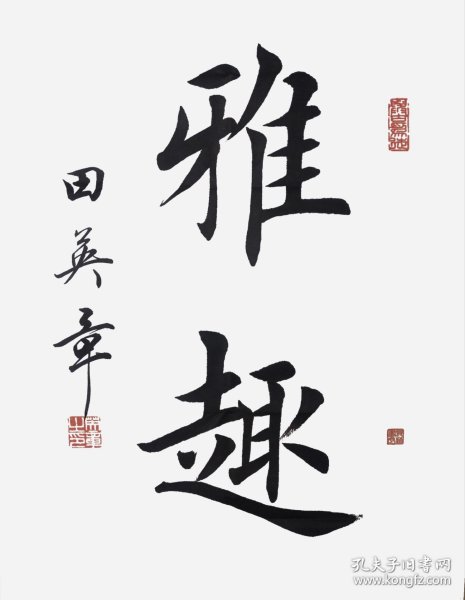 雅趣
田英章
孔夫子旧书网
www.kongfz.com